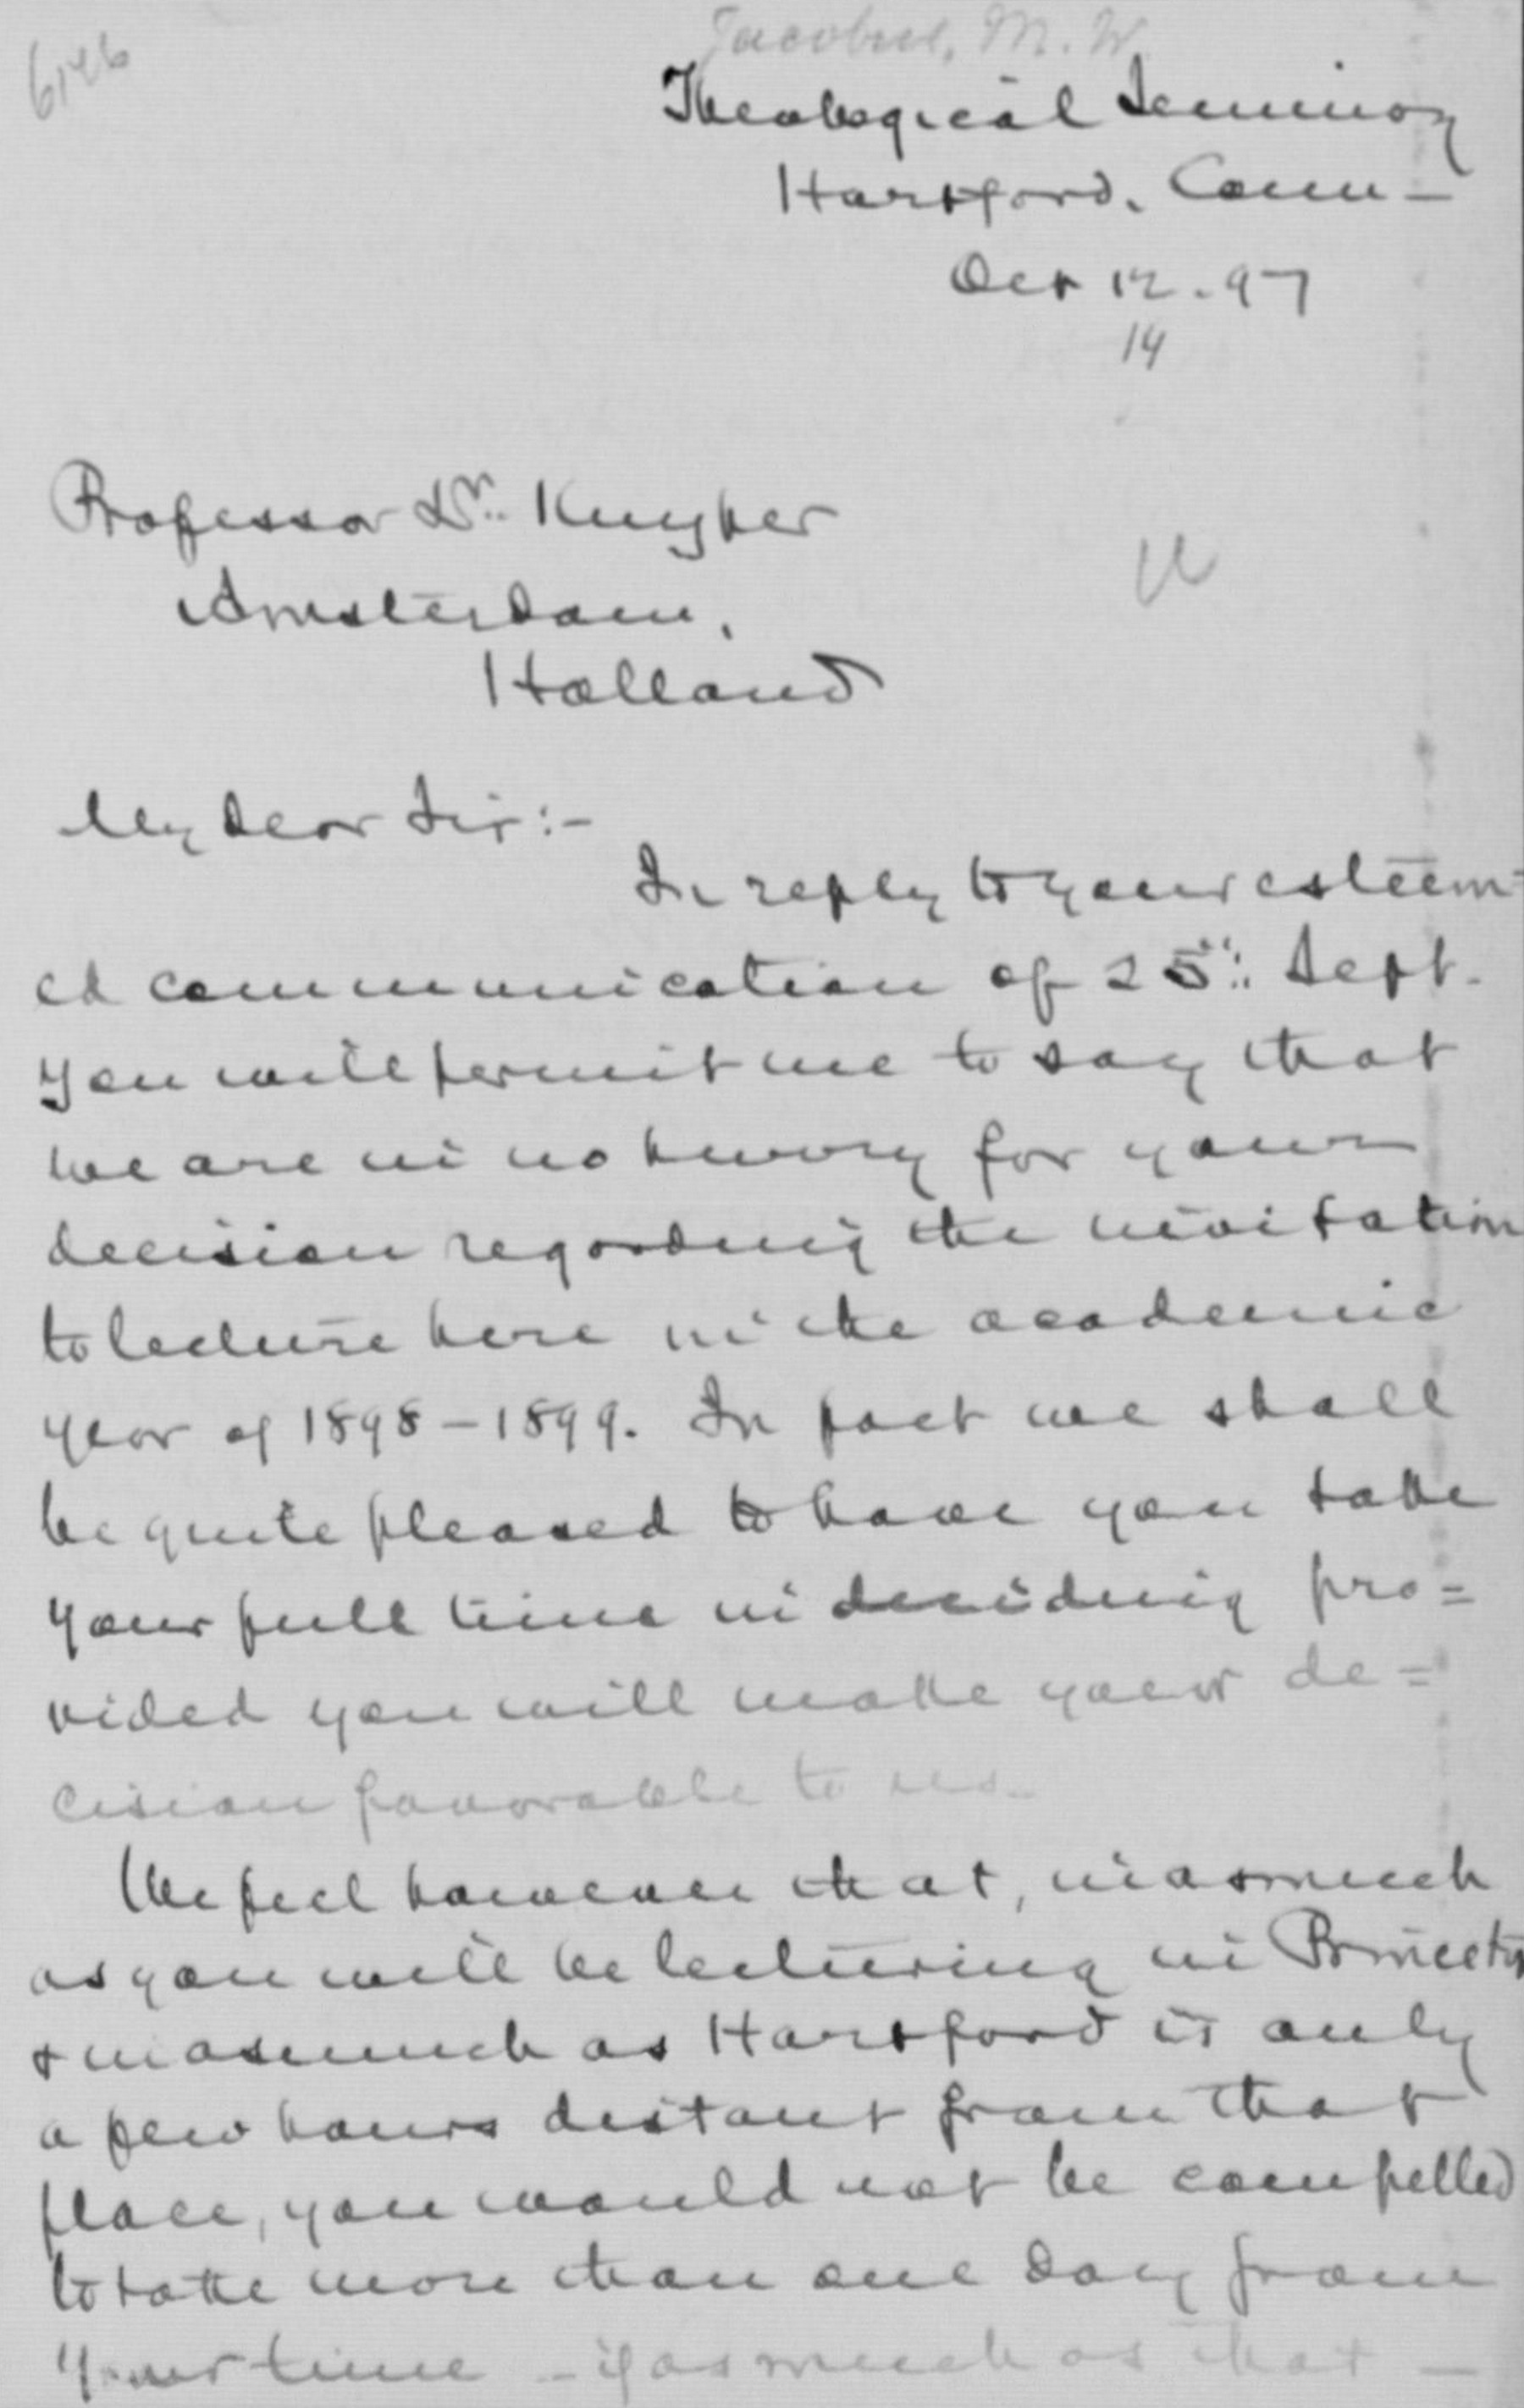 6146
Jacobus, M. W.
Theological Seminary
Hartford, Conn -
Oct 12 - 97
14
Professor Dr. Kuyper
Amsterdam,
Holland
My dear Sir:-
In reply to your esteem-
ed communication of 25th Sept.
you will permit me to say that
we are in no hurry for your
decision regarding the invitation
to lecture here in the academic
year of 1898-1899. In fact we shall
be quite pleased to have you take
your full time in deciding pro=
vided you will make your de=
cision favorable to us.
We feel however that, inasmuch
as you will be lecturing in Princeton
& inasmuch as Hartford is only
a few hours distant from that
place, you would not be compelled
to take more than one day from
your time - if as much as that -